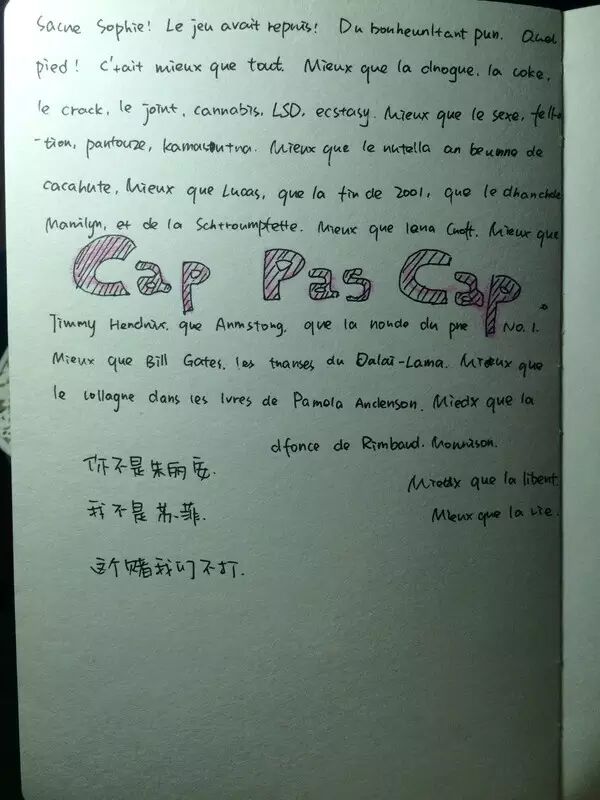 Sacne Sophie! Le jeu avait repnis! Du bonheunltant pun. Quel
pied! c'tait mieux que tout. Mieux que la dnogue, la coke,
le crack, le joint, cannabis, LSD, ecstasy. Mieux que le sexe, fella
-tion, pantouze, kamasutna. Mieux que le nutella an beunne de
cacahute, Mieux que Lucas, que la fin de 2001, que le dhanchde
Manilyn, et de la Schtroumpfette. Mieux que Lana Cnoft. Mieux que
Cap Pas Cap
Jimmy Hendnix, que Anmstong, que la nonde du pne No.1.
Mieux que Bill Gates, les tnanses du Dalaï-Lama. Mieux que
le collagne dans les lvres de Pamola Anclenson. Miedx que la
dfonce de Rimbaud. Monnison.
Miedx que la libent.
Mieux que la vie.
你不是朱丽安.
我不是苏菲.
这个赌我们不打.